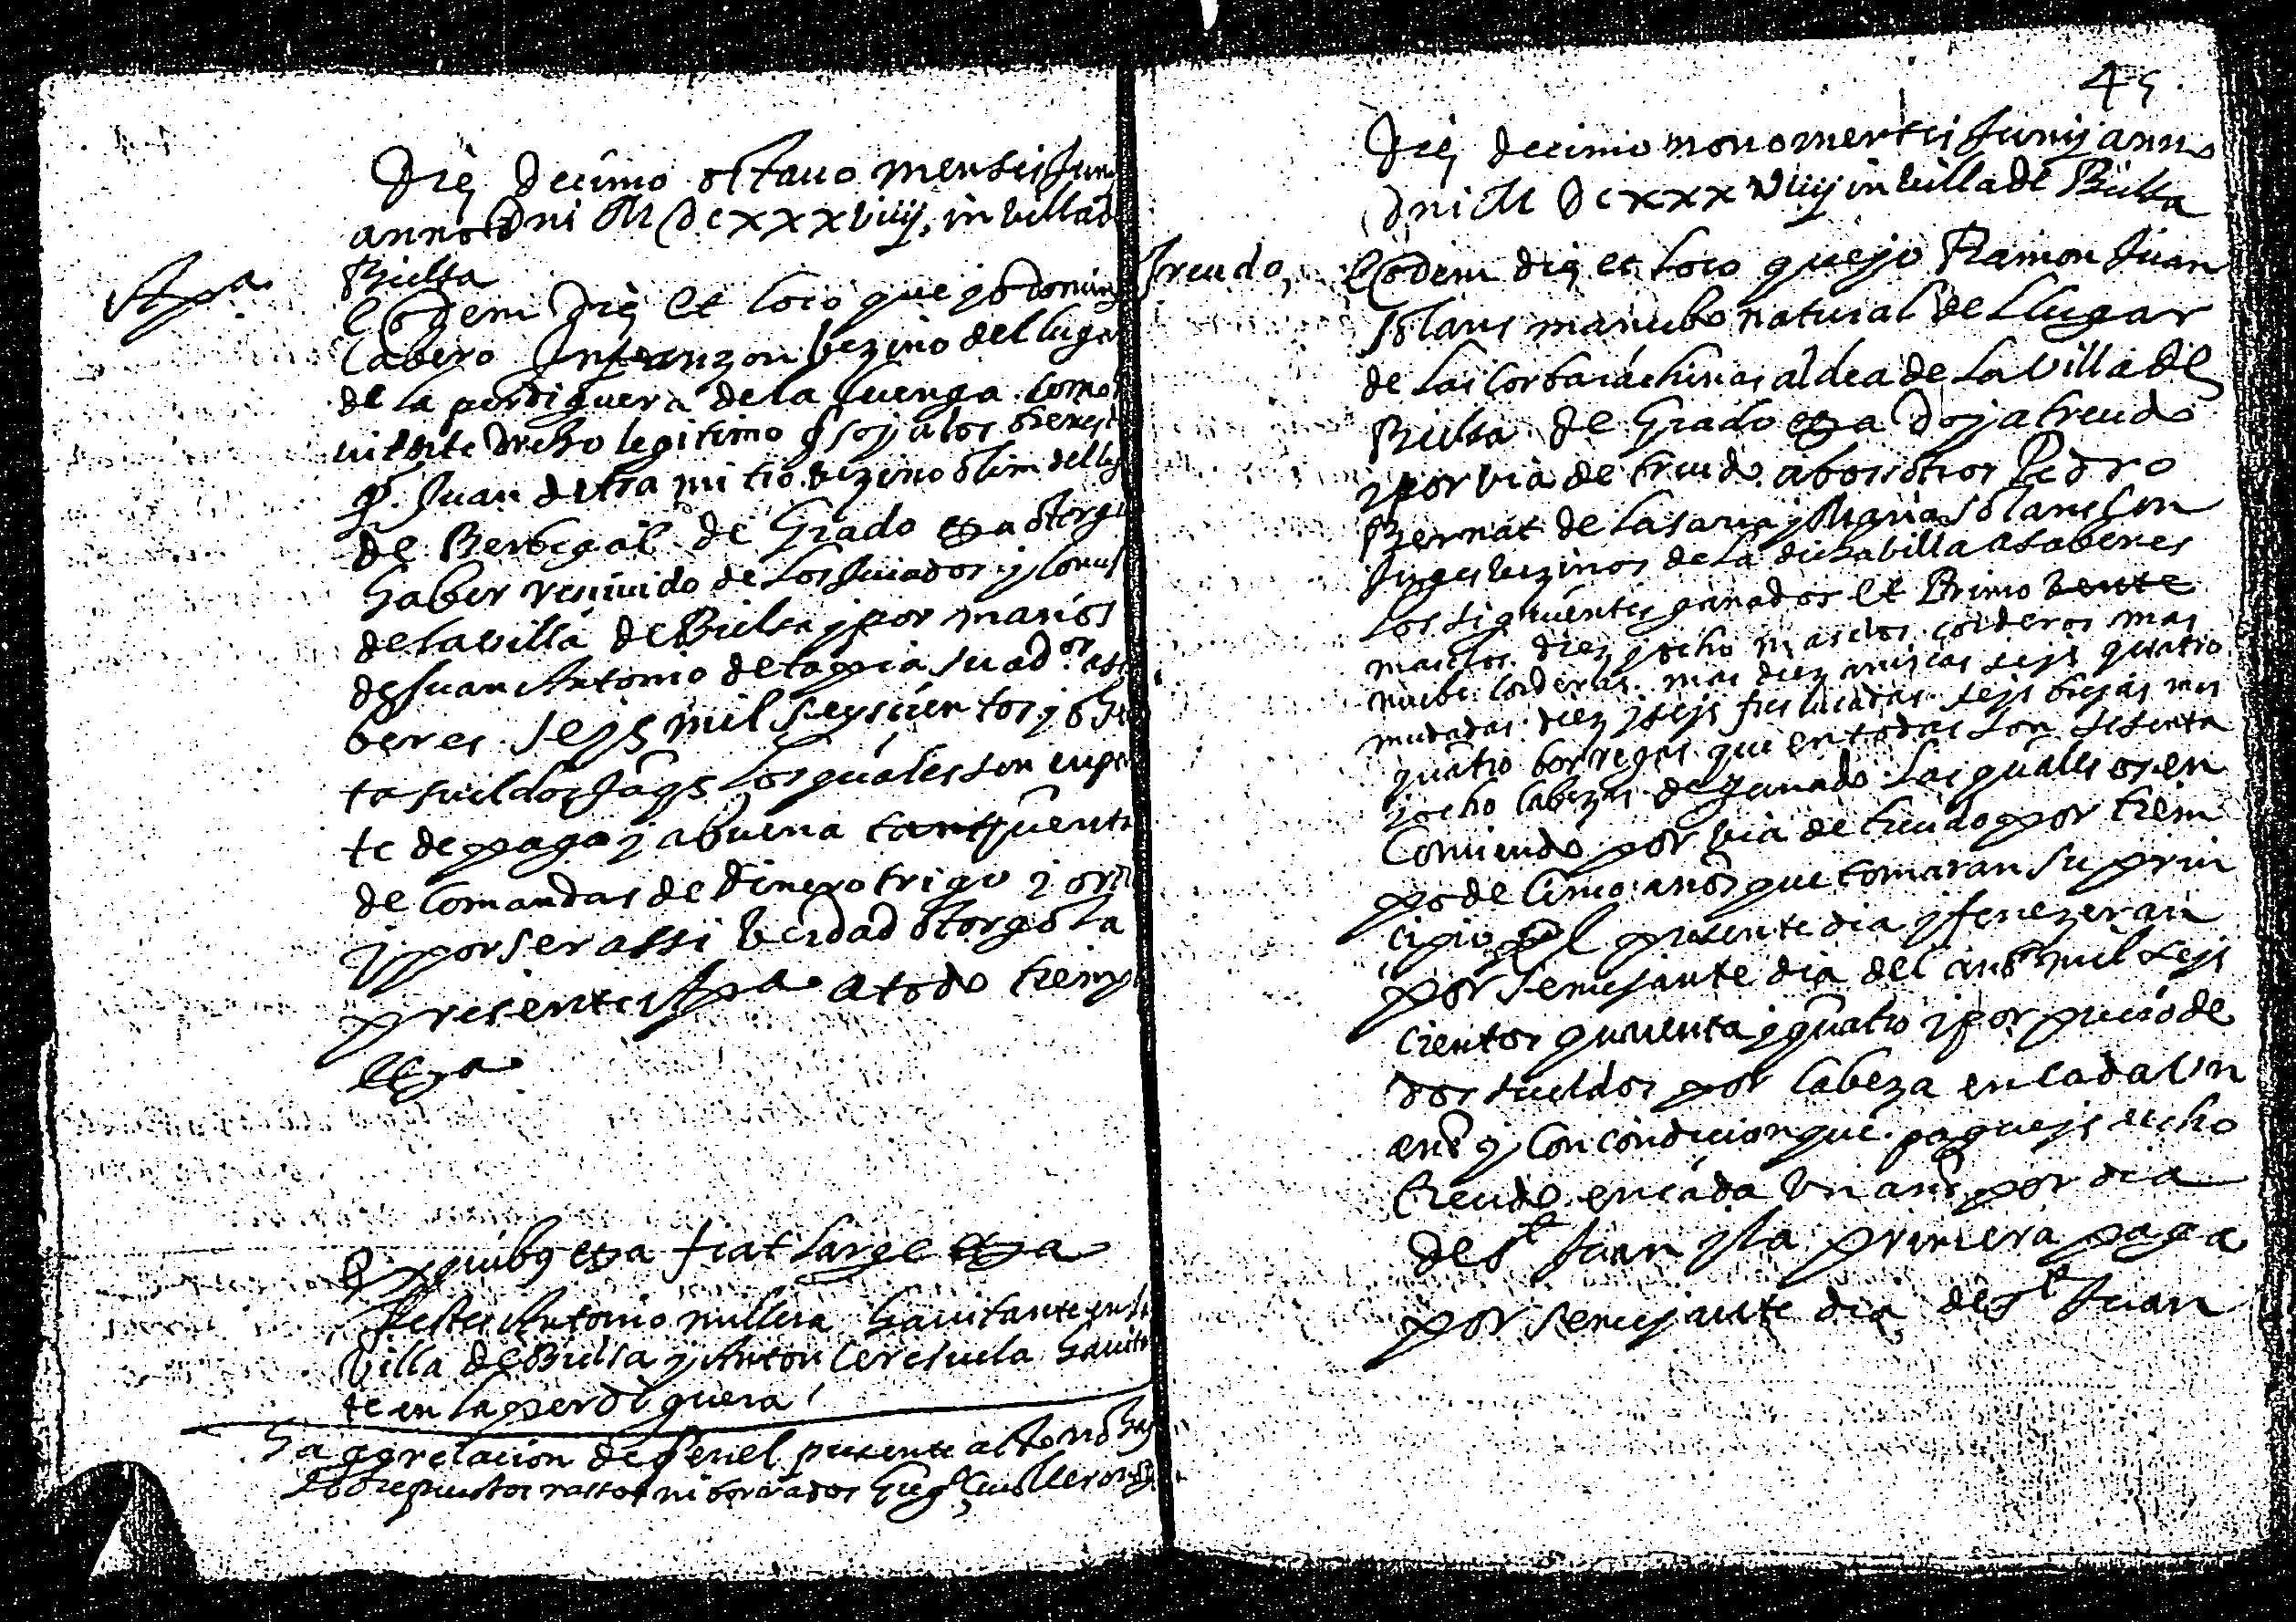 Die decimo octauo mensis Juny
anno Dni M Dcxxxviiij, in villa de
Bielsa
Apa
Eodem die et loco que yo Doming
Cabero Infanzon vezino del lugar
de la perdiguera de la fuenga como
drcho legitimo q soy a los bienes
q. Juan de tra mi tio vezino olim del lug
de Berbegal de Grado etza otorgo
haber reciuido de los Jurados y
de la villa de Bielsa y por manos
de Juan Antonio de tapia su ador asa
beres seys mil seyscientos y och
ta sueldos Jaqs los quales son en par
te de paga y a buena
de comandas de dinero trigo y
y por ser assi verdad otorgo la
presente Apa a todo tiemp
etza
Ex quibus etza fiat large etza
Testes Antonio millera hauitante en la
villa de Bielsa y Anton Ceresuela hauitan
te en la perdiguera
en el presente acto no hay
sobrepuestos rassos ni borrados
45
Die decimo nono mensis Juny anno
Dni M Dcxxxviiij in villa de Bielsa
treudo,
Eodem die et loco que yo Ramon Juan
Solans mancebo natural del lugar
de las cortasachinas aldea de la villa de
Bielsa de Grado etza doy a treudo
y por via de treudo a bosotros Pedro
Bernat de Lasaria y Maria Solans con
juges vezinos de la dicha villa a saber es
los siguientes ganados et Primo
machos diez y ocho mascles corderos mas
nuebe corderas mas diez seys quatro
mudadas diez y seys seys biejas mas
quatro borregas que en todas son setenta
y ocho cabezas de ganado las quales os en
comiendo por via de treudo por tiem
po de cinco anos que tomaran su prin
cipio el presente dia y fenezeran
por semejante dia del ano mil seys
cientos quarenta y quatro y por precio de
dos sueldos por cabeza en cada un
ano y con condicion que pagueys dicho
treudo en cada un ano por dia
de St Juan y la primera paga
por semejante dia de St Juan